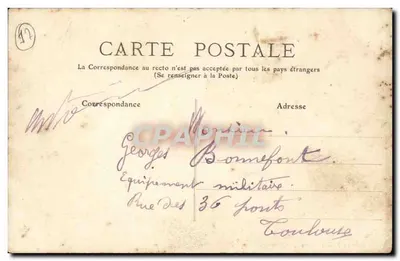 17
CARTE POSTALE
La Correspondance au recto n'est pas acceptée par tous les pays étrangers
(Se renseigner à la Poste)
Correspondance
Adresse
Monsieur
CPARAMA
Georges Bonnefont
Equipement militaire
Rue des 36 ponts
Toulouse